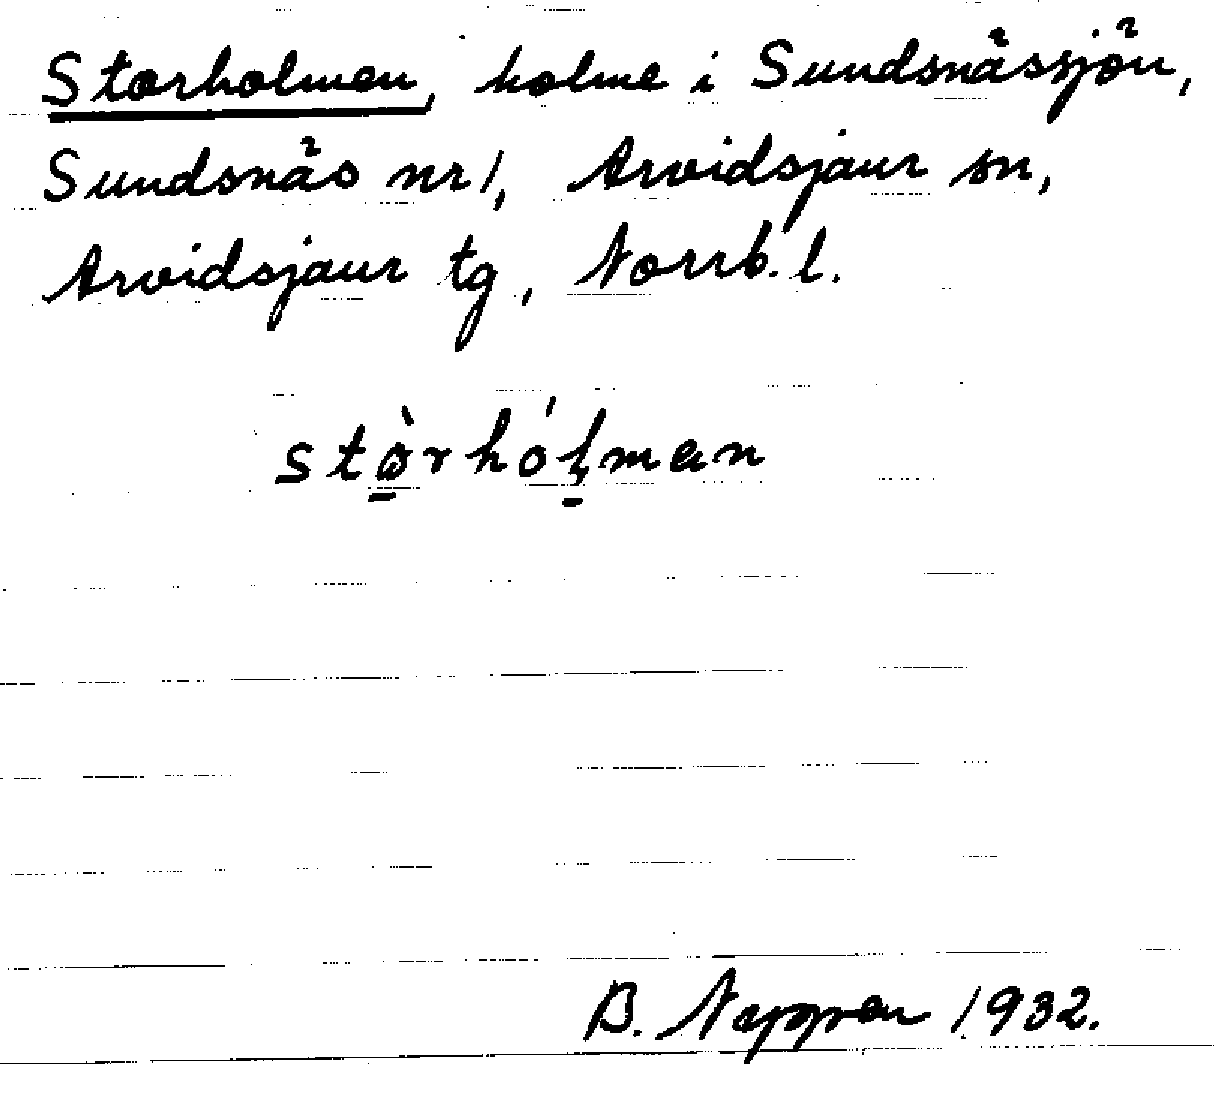 Storholmen, holme i Sundsnässjön,
Sundsnäs nr 1, Arvidsjaur sn,
Arvidsjaur tg, Norrb. l.
stòrhóḷman
B. 1932.